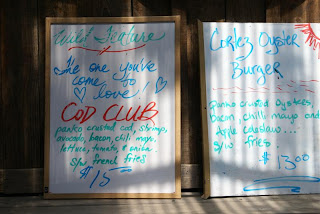 Wild Feature
The one you've
come to
love!
COD CLUB
panko crusted cod, shrimp,
avocado, bacon, chili mayo,
lettuce, tomato, & onion.
s/w french fries
$15
Cortez Oyster
Burger
panko crusted oysters,
bacon, chili mayo and
Apple coleslaw...
s/w fries
$13.00